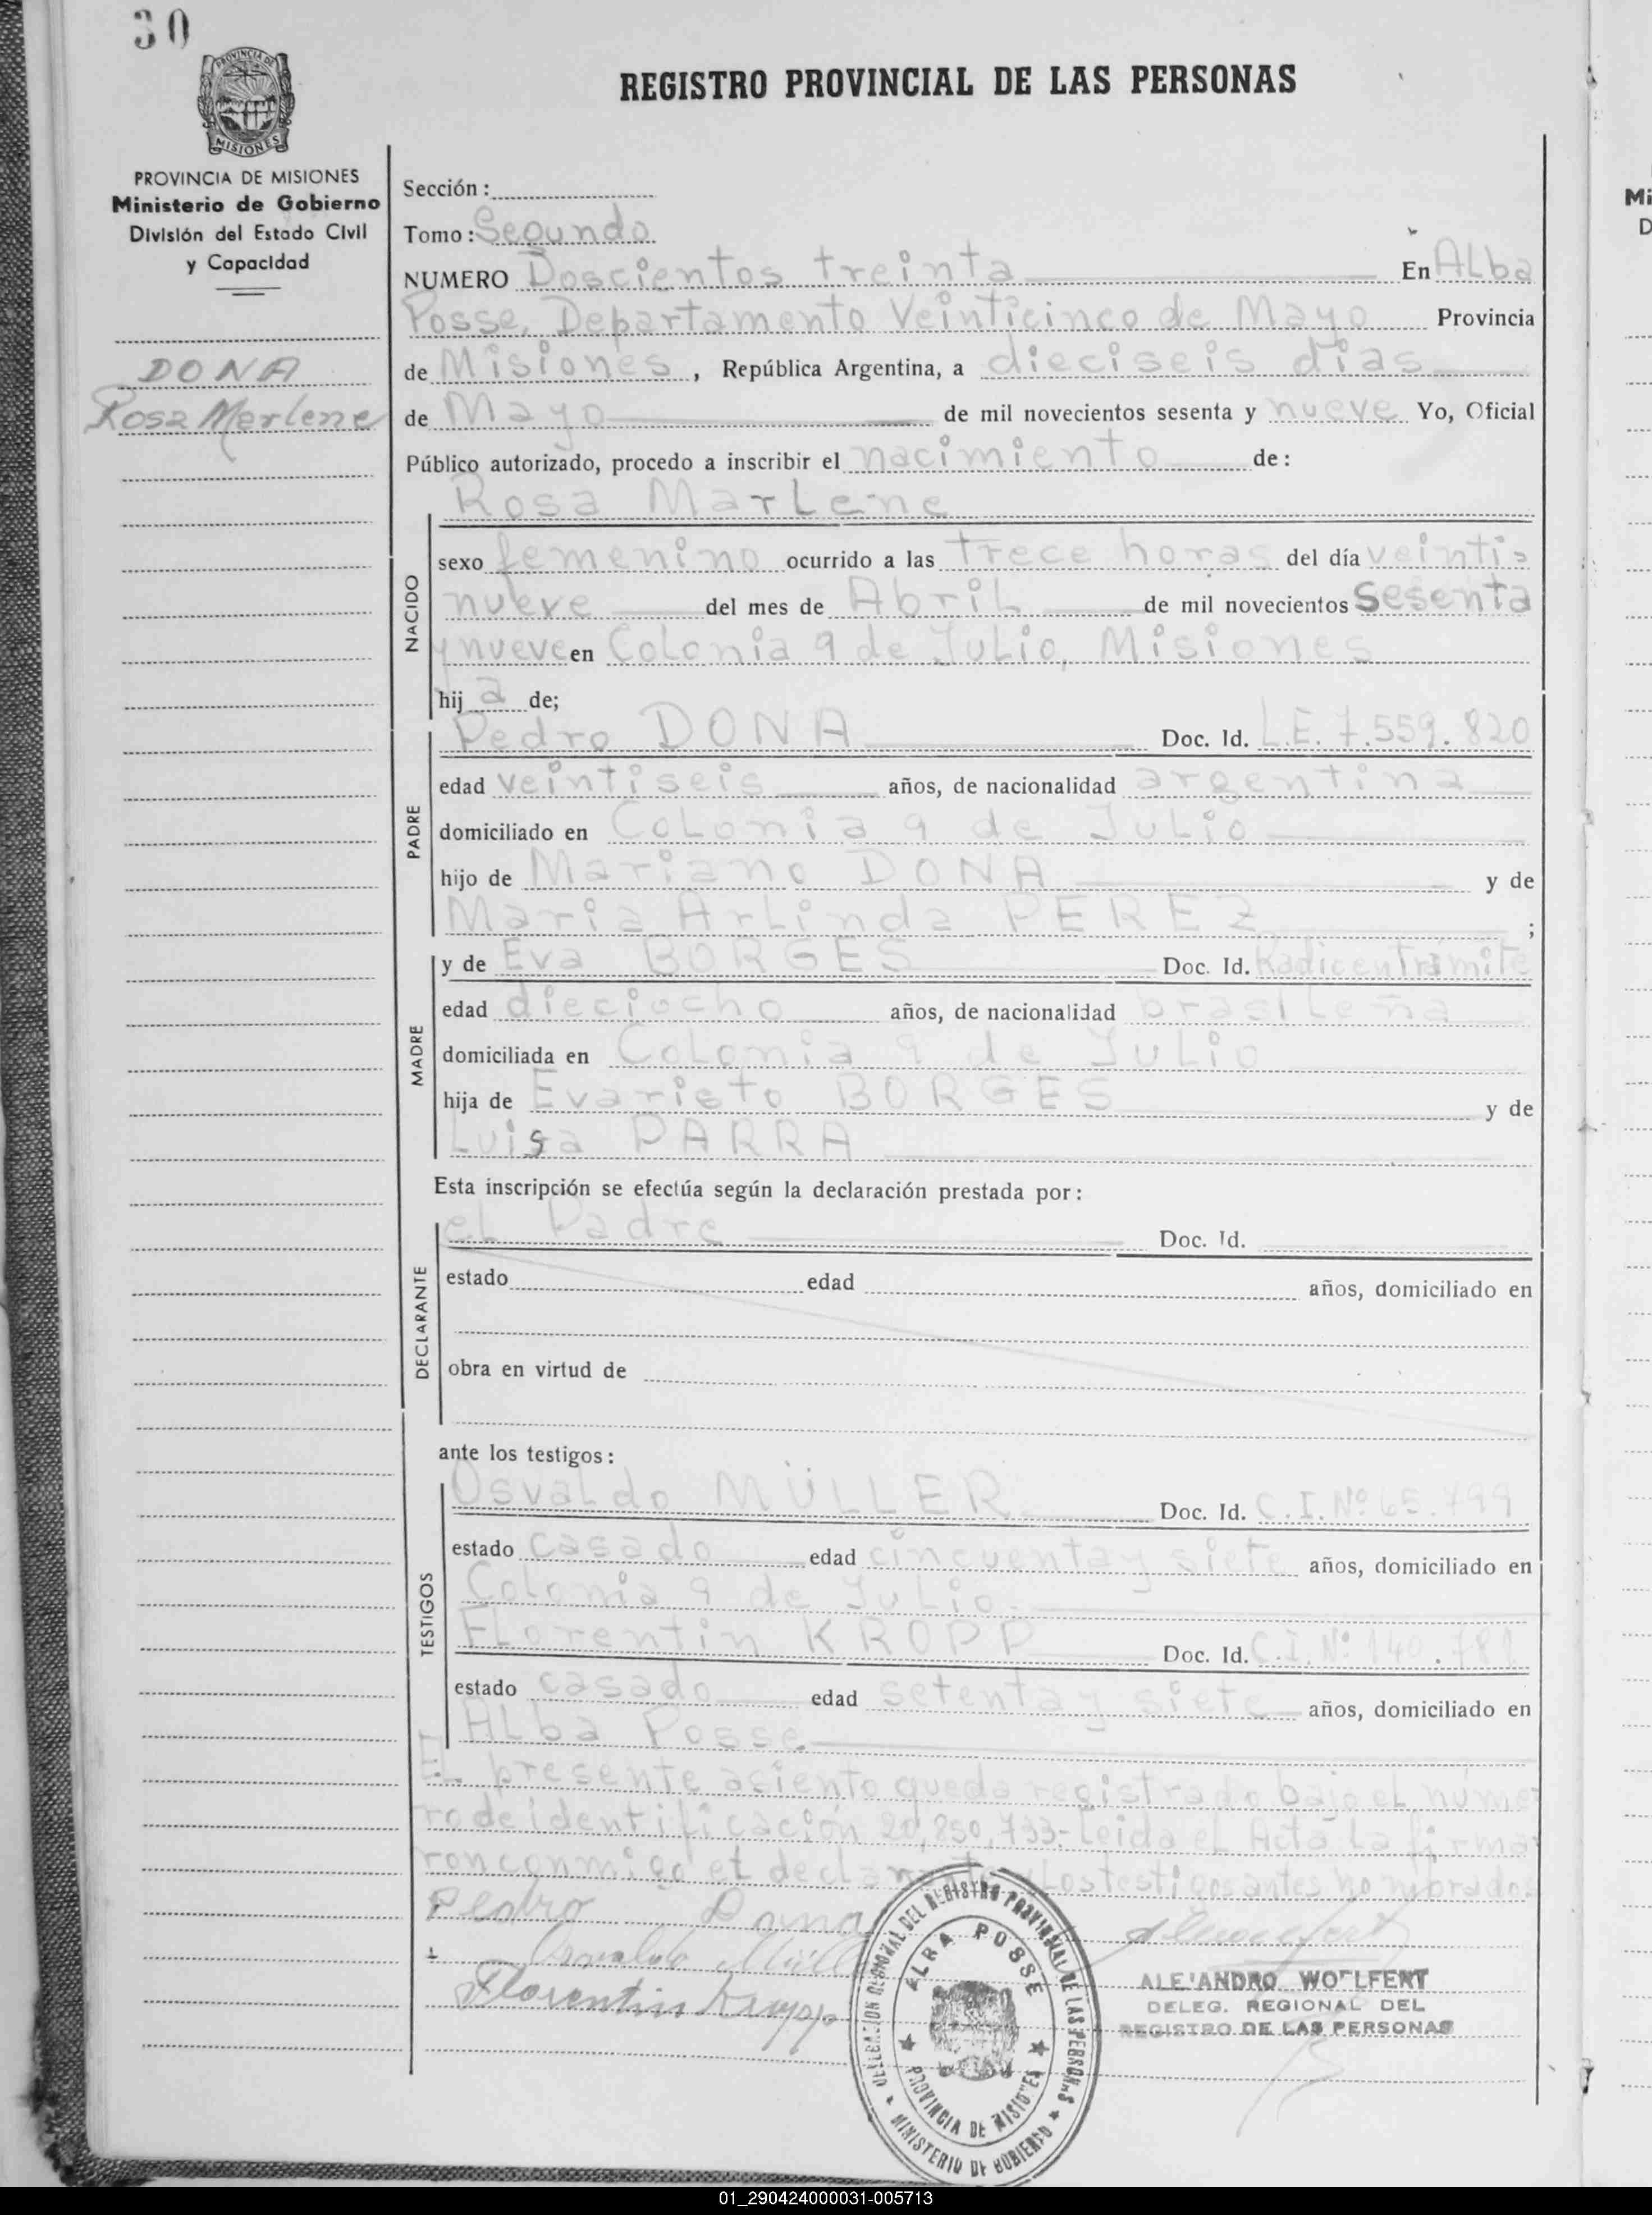 30
PROVINCIA DE
MISIONES
REGISTRO PROVINCIAL DE LAS PERSONAS
PROVINCIA DE MISIONES
Ministerio de Gobierno
División del Estado Civil
y Capacidad
DONA
Rosa Marlene
Sección:
Tomo: Segundo
NUMERO Doscientos treinta En Alba
Posse, Departamento Veinticinco de Mayo Provincia
de Misiones, República Argentina, a dieciseis días
de Mayo de mil novecientos sesenta y nueve Yo, Oficial
Público autorizado, procedo a inscribir el nacimiento de:
NACIDO
Rosa Marlene
sexo femenino ocurrido a las trece horas del día veinti=
nueve del mes de Abril de mil novecientos sesenta
y nueve en Colonia 9 de Julio, Misiones
hij a de;
PADRE
Pedro DONA Doc. Id. L.E. 7.559.820
edad veintiseis años, de nacionalidad argentina
domiciliado en Colonia 9 de Julio
hijo de Mariano DONA y de
Maria Arlinda PEREZ ;
MADRE
y de Eva BORGES Doc. Id. Radic en trámite
edad dieciocho años, de nacionalidad brasileña
domiciliada en Colonia 9 de Julio
hija de Evaristo BORGES y de
Luisa PARRA
Esta inscripción se efectúa según la declaración prestada por:
DECLARANTE
el Padre Doc. Id.
estado edad años, domiciliado en
obra en virtud de
ante los testigos:
TESTIGOS
Osvaldo MÜLLER Doc. Id. C.I. Nº 65.799
estado casado edad cincuenta y siete años, domiciliado en
Colonia 9 de Julio.
Florentin KROPP Doc. Id. C.I. Nº 140.781
estado casado edad setenta y siete años, domiciliado en
Alba Posse
El presente asiento queda registrado bajo el núme
ro de identificación 20,850,733- Leida el Acta la firma
ron conmigo el declarante y los testigos antes nombrados
Pedro Dona
Osvaldo Müller
Florentin Kropp
DELEGACION REGIONAL DEL REGISTRO PROVINCIAL DE LAS PERSONAS
ALBA POSSE
PROVINCIA DE MISIONES
MINISTERIO DE GOBIERNO
ALEJANDRO WOELFERT
DELEG. REGIONAL DEL
REGISTRO DE LAS PERSONAS
Mi
D
01_290424000031-005713